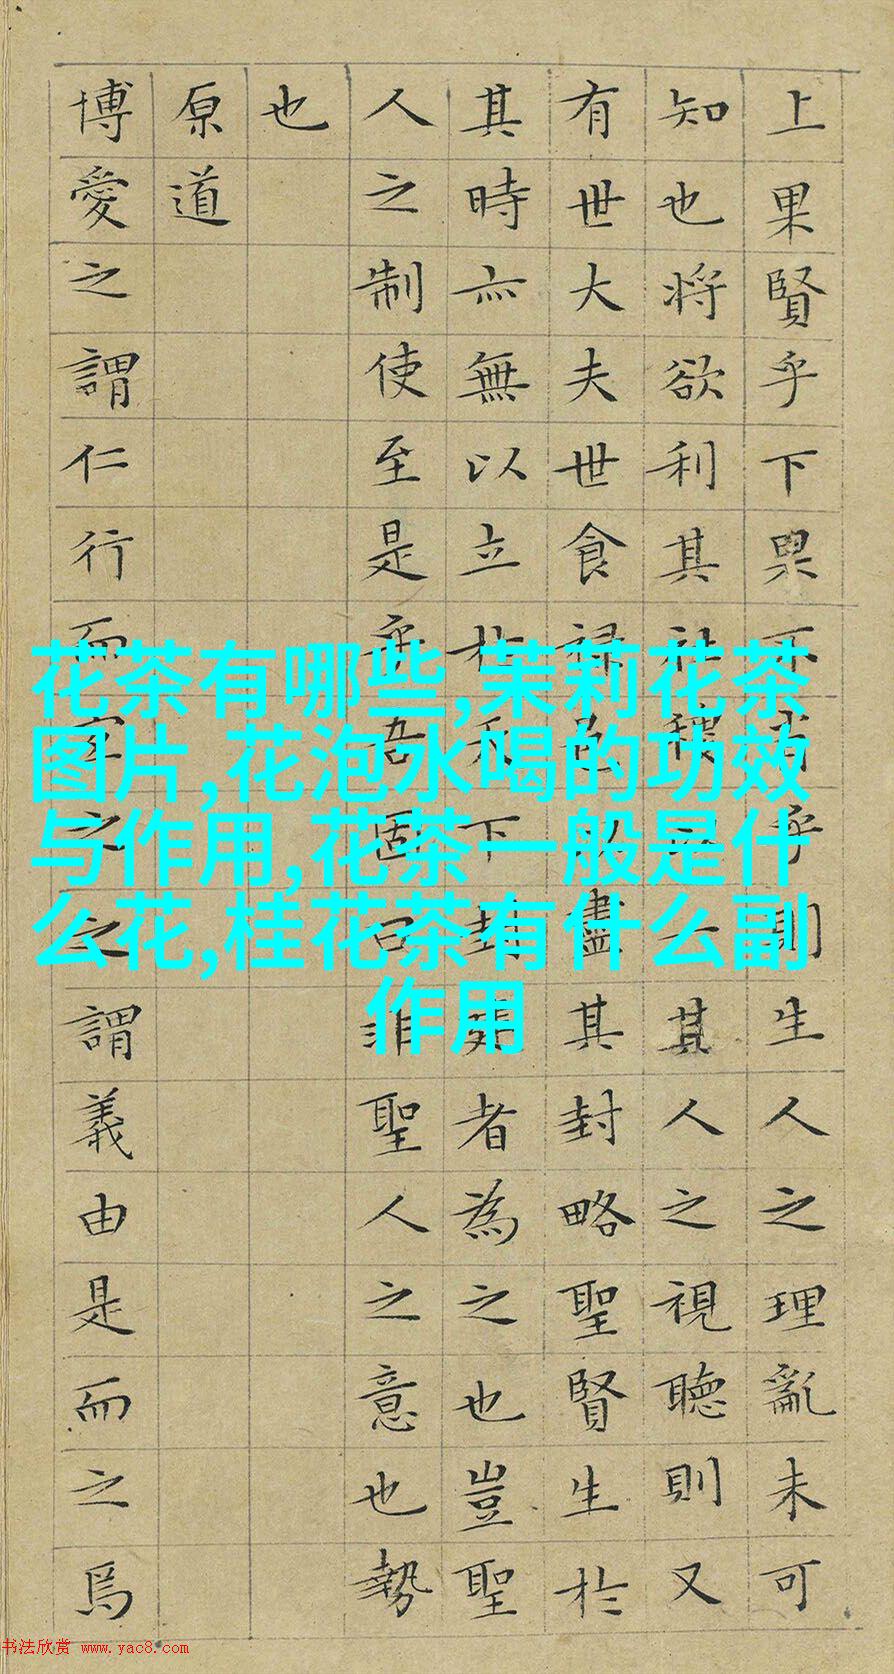 上果賢乎下果不肖乎則生人之理亂未可
知也將欲利其社稷以一其人之視聽則又
有世大夫世食祿邑以盡其封略聖賢生於
其時亦無以立於天下封建者為之也豈聖
人之制使至是乎吾固曰非聖人之意也勢
也
原道
博愛之謂仁行而宜之之謂義由是而之焉
花茶有哪些,茉莉花茶
图片,花泡水喝的功效
与作用,花茶一般是什
么花,桂花茶有什么副
作用
书法欣赏 www.yac8.com